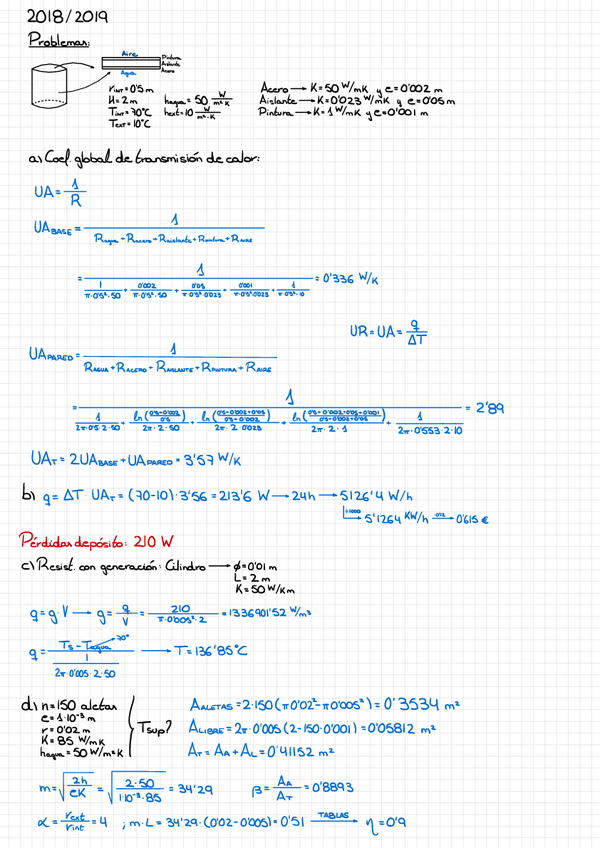 2018/2019
Problemas:
Aire
Pintura
Aislante
Acero
Agua
rINT = 0'5 m
H = 2 m
TINT = 70°C
TEXT = 10°C
hagua = 50 W/m²K
hext = 10 W/m²·K
Acero → K=50 W/mK y e=0'002 m
Aislante → K=0'023 W/mK y e=0'05 m
Pintura → K=1 W/mK y e=0'001 m
a) Coef. global de transmisión de calor:
UA = 1/R
UABASE = 1/(Ragua + Racero + Raislante + Rpintura + RAIRE)
= 1/(1/(π·0'5²·50) + 0'002/(π·0'5²·50) + 0'05/(π·0'5²·0'023) + 0'001/(π·0'5²·0023) + 1/(π·0'5²·10)) = 0'336 W/K
UR = UA = q/ΔT
UAPARED = 1/(RAGUA + RACERO + RAISLANTE + RPINTURA + RAIRE)
= 1/(1/(2π·0'5·2·50) + ln((0'5+0'002)/0'5)/(2π·2·50) + ln((0'5+0'002+0'05)/(0'5+0'002))/(2π·2·0'023) + ln((0'5+0'002+0'05+0'001)/(0'5+0'002+0'05))/(2π·2·1) + 1/(2π·0'553·2·10)) = 2'89
UAT = 2UABASE + UAPARED = 3'57 W/K
b) q = ΔT · UAT = (70-10)·3'56 = 213'6 W → 24h → 5126'4 W/h
÷1000 → 5'1264 KW/h ·0'12 → 0'615 €
Pérdidas depósito: 210 W
c) Resist. con generación: Cilindro → ϕ=0'01 m
L = 2 m
K = 50 W/Km
q = g·V → g = q/V = 210/(π·0'005²·2) = 1336901'52 W/m³
q = (Ts - Tagua)/(1/(2π·0'005·2·50)) → T = 136'85°C
70°
d) n=150 aletas
e = 1·10⁻³ m
r = 0'02 m
K = 85 W/mK
hagua = 50 W/m²K
Tsup?
AALETAS = 2·150(π0'02² - π0'005²) = 0'3534 m²
ALIBRE = 2π·0'005(2-150·0'001) = 0'05812 m²
AT = AA + AL = 0'41152 m²
m = √(2h/eK) = √(2·50/(1·10⁻³·85)) = 34'29
β = AA/AT = 0'8893
α = rext/rint = 4 ; m·L = 34'29·(0'02-0'005) = 0'51 TABLAS → η = 0'9